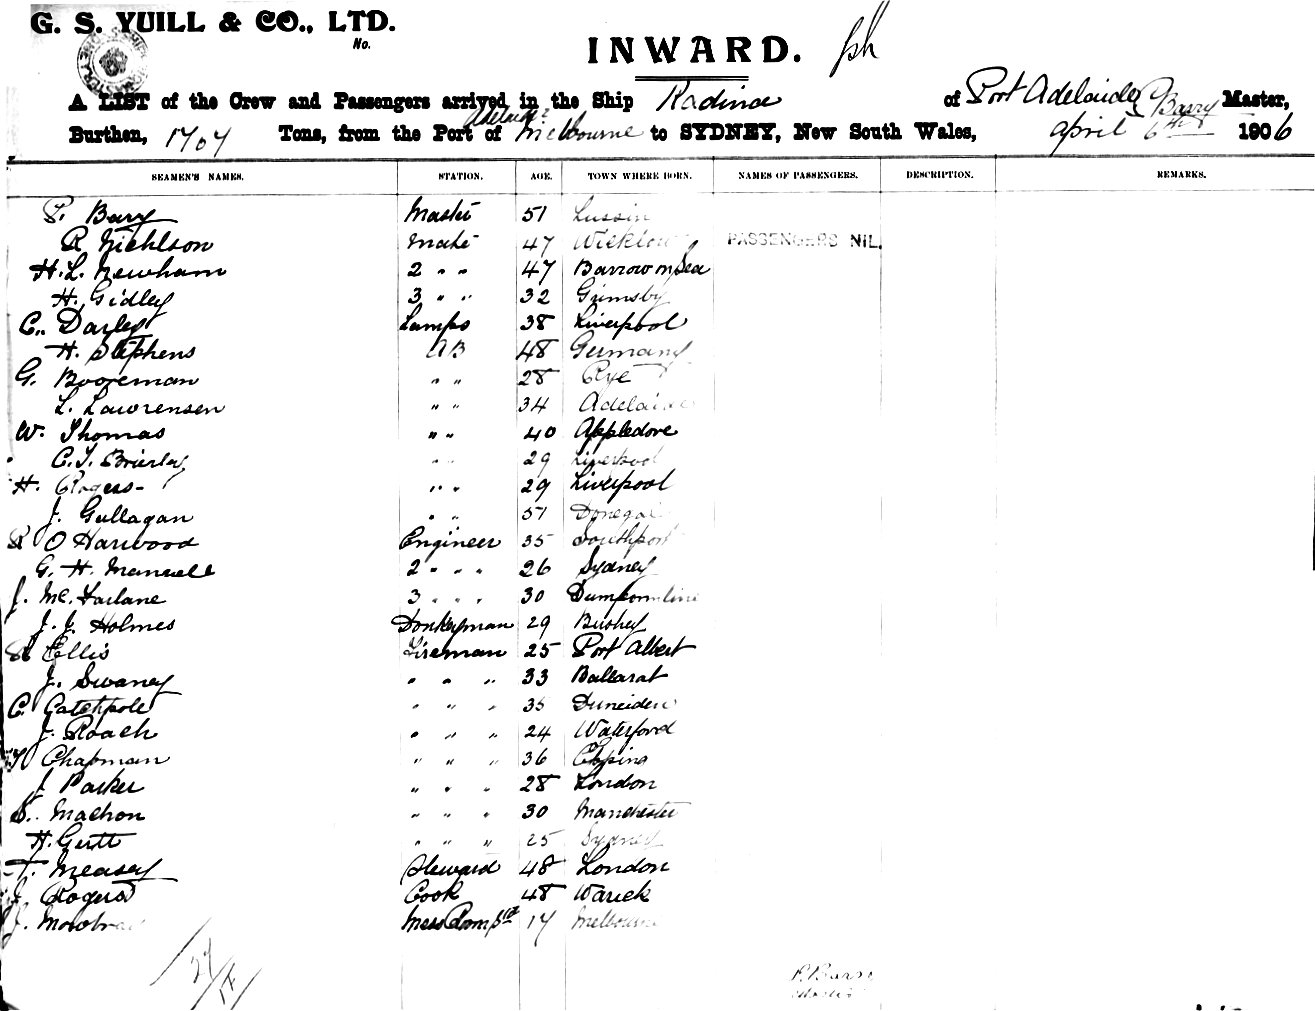 G. S. YUILL & CO., LTD.
No.
INWARD.
A LIST of the Crew and Passengers arrived in the Ship Kadina of Port Adelaide, P Barry Master,
Burthen, 1704 Tons, from the Port of Adelaide & Melbourne to SYDNEY, New South Wales, April 6th 1906
SEAMEN'S NAMES. STATION. AGE. TOWN WHERE BORN. NAMES OF PASSENGERS. DESCRIPTION. REMARKS.
P. Barry Master 51 Lussin
R Nichlson Mate 47 Wicklow PASSENGERS NIL
H. L. Newham 2 " " 47 Barrow on Sea
H. Gidley 3 " " 32 Grimsby
C. Darley Lamps 38 Liverpool
H. Stephens AB 48 Germany
G. Booreman " " 28 Rye
L. Lawrensen " " 34 Adelaide
W. Thomas " " 40 Appledore
C. T. Brierley " " 29 Liverpool
H. Rogers " " 29 Liverpool
J. Gallagan " " 51 Donegal
R O Harwood Engineer 35 Southport
G. H. Mansell 2 " " " 26 Sydney
J. Mc. Farlane 3 " " " 30 Dumfermline
J. J. Holmes Donkeyman 29 Bushey
R Ellis Fireman 25 Port Albert
J. Swaney " " " 33 Ballarat
C. Catchpole " " " 35 Duneiden
J. Roach " " " 24 Waterford
T Chapman " " " 36 Epping
J Parker " " " 28 London
S. Machon " " " 30 Manchester
H. Gutt " " " 25 Sydney
T. Measey Steward 48 London
J. Rogers Cook 48 Warick
J. Mowbray Mess Rm Std 17 Melbourne
27
P. Barry
Master